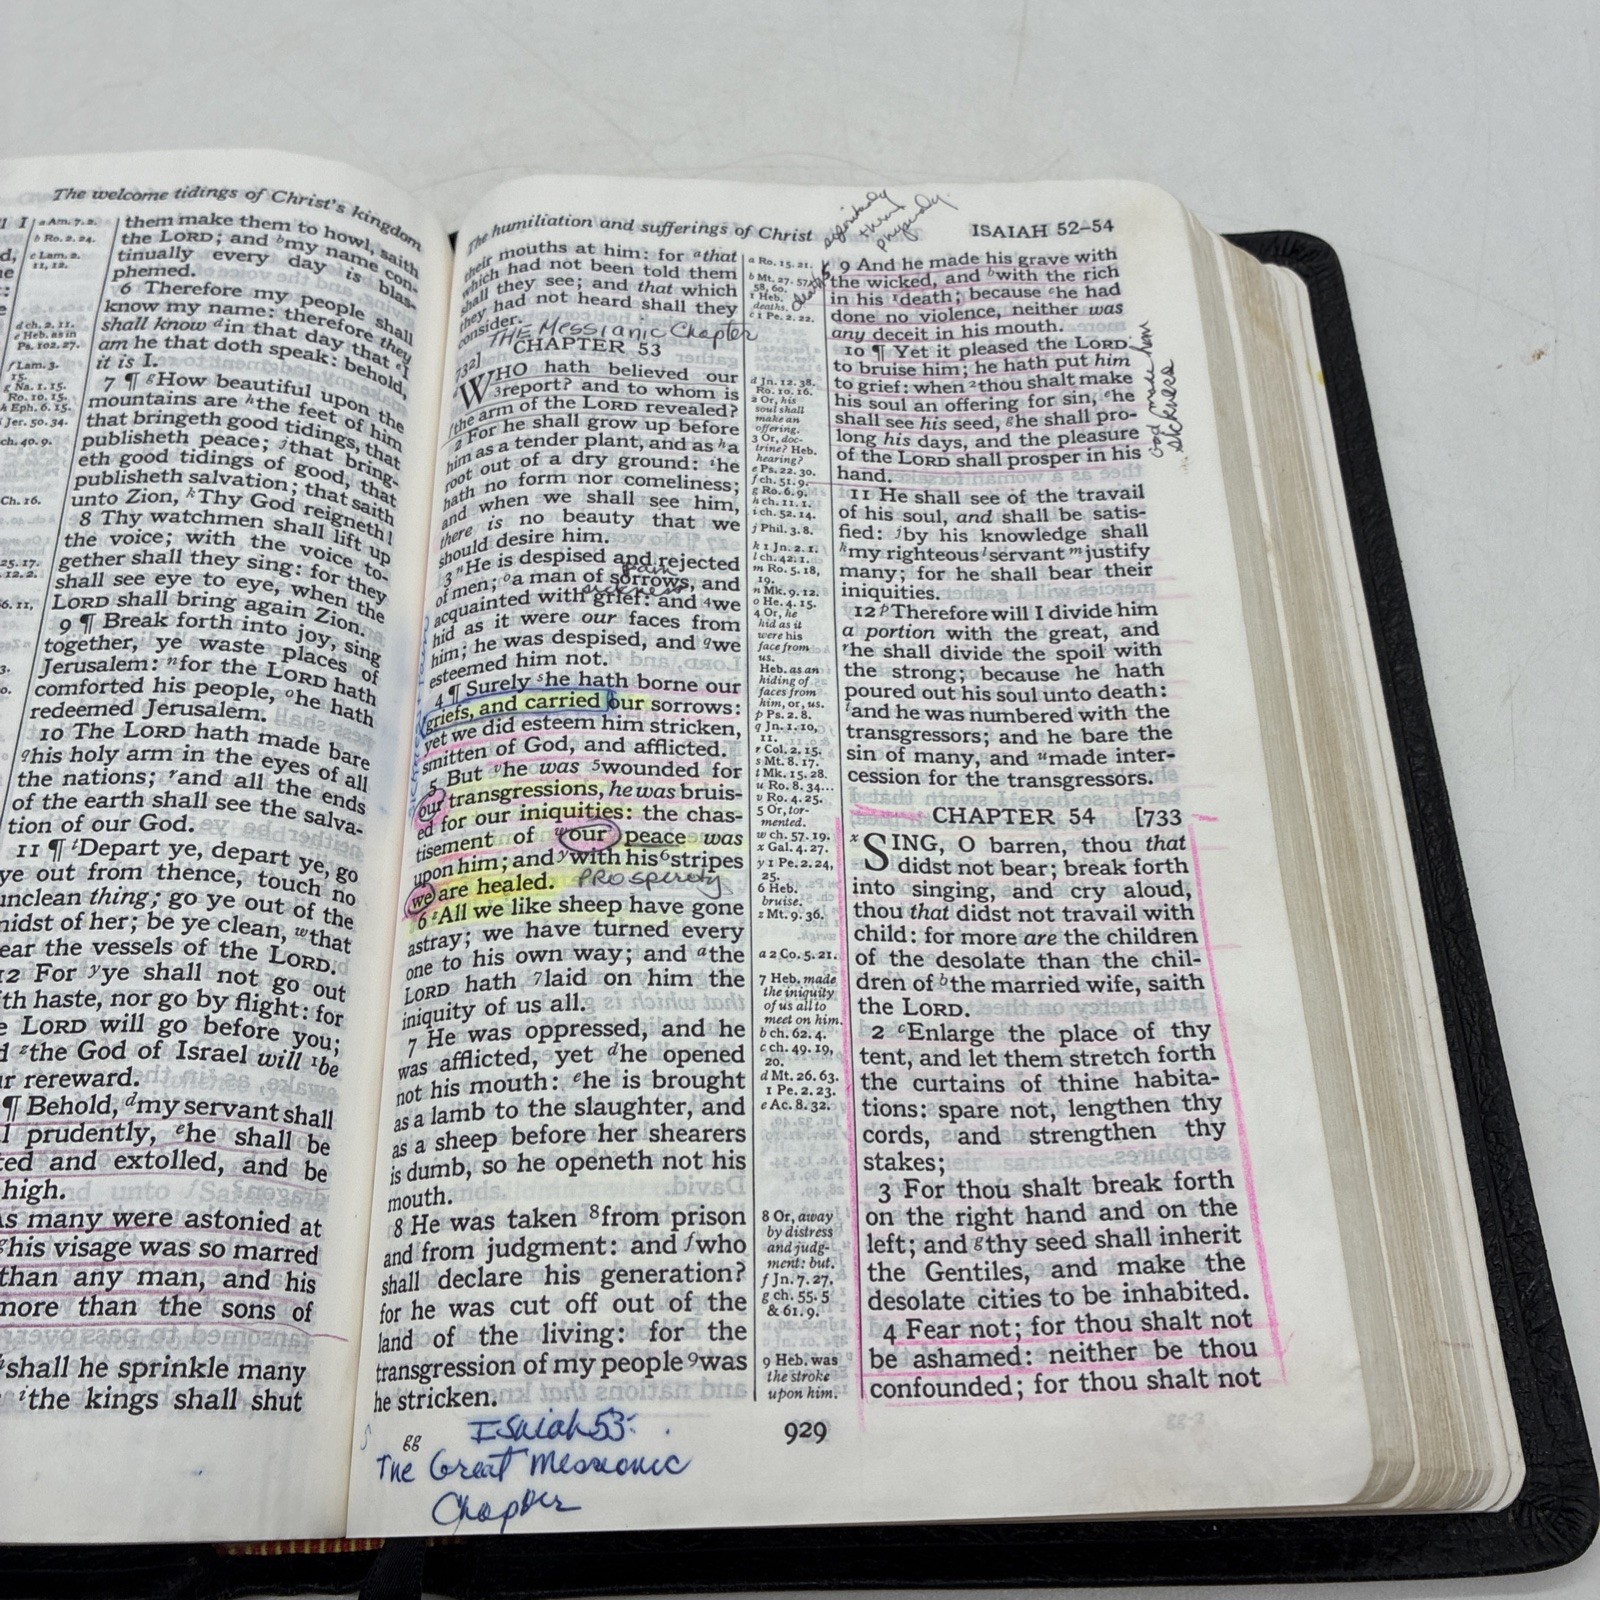 The welcome tidings of Christ's kingdom
a Am. 7. 2.
b Ro. 2. 24.
c Lam. 2.
11, 12.
d ch. 2. 11.
e Heb. as in
Ps. 102. 27.
f Lam. 3.
15.
g Na. 1. 15.
Ro. 10. 15.
h Eph. 6. 15.
i Jer. 50. 34.
ch. 40. 9.
Ch. 16.
25. 17.
12. 2.
6. 11,
them make them to howl, saith
the LORD; and bmy name con-
tinually every day is blas-
phemed.
6 Therefore my people shall
know my name: therefore they
shall know din that day that eI
am he that doth speak: behold,
it is I.
7 ¶ gHow beautiful upon the
mountains are hthe feet of him
that bringeth good tidings, that
publisheth peace; jthat bring-
eth good tidings of good, that
publisheth salvation; that saith
unto Zion, kThy God reigneth!
8 Thy watchmen shall lift up
the voice; with the voice to-
gether shall they sing: for they
shall see eye to eye, when the
LORD shall bring again Zion.
9 ¶ Break forth into joy, sing
together, ye waste places of
Jerusalem: nfor the LORD hath
comforted his people, ohe hath
redeemed Jerusalem.
10 The LORD hath made bare
qhis holy arm in the eyes of all
the nations; rand all the ends
of the earth shall see the salva-
tion of our God.
11 ¶ tDepart ye, depart ye, go
ye out from thence, touch no
unclean thing; go ye out of the
midst of her; be ye clean, wthat
ear the vessels of the LORD.
12 For yye shall not go out
ith haste, nor go by flight: for
e LORD will go before you;
d zthe God of Israel will 1be
ur rereward.
¶ Behold, dmy servant shall
l prudently, ehe shall be
ted and extolled, and be
high.
As many were astonied at
ghis visage was so marred
than any man, and his
more than the sons of
hshall he sprinkle many
ithe kings shall shut
The humiliation and sufferings of Christ
ISAIAH 52–54
their mouths at him: for athat
which had not been told them
shall they see; and that which
they had not heard shall they
consider.
THE Messianic Chapter
CHAPTER 53
732]
WHO hath believed our
3report? and to whom is
fthe arm of the LORD revealed?
2 For he shall grow up before
him as a tender plant, and as ha
root out of a dry ground: ihe
hath no form nor comeliness;
and when we shall see him,
there is no beauty that we
should desire him.
3 nHe is despised and rejected
pain
of men; oa man of sorrows, and
sickness
acquainted with grief: and 4we
hid as it were our faces from
him; he was despised, and qwe
esteemed him not.
4 ¶ Surely she hath borne our
griefs, and carried our sorrows:
yet we did esteem him stricken,
smitten of God, and afflicted.
5 But vhe was 5wounded for
our transgressions, he was bruis-
ed for our iniquities: the chas-
tisement of wour peace was
upon him; and ywith his 6stripes
we are healed. Prosperety
6 zAll we like sheep have gone
astray; we have turned every
one to his own way; and athe
LORD hath 7laid on him the
iniquity of us all.
7 He was oppressed, and he
was afflicted, yet dhe opened
not his mouth: ehe is brought
as a lamb to the slaughter, and
as a sheep before her shearers
is dumb, so he openeth not his
mouth.
8 He was taken 8from prison
and from judgment: and fwho
shall declare his generation?
for he was cut off out of the
land of the living: for the
transgression of my people 9was
he stricken.
a Ro. 15. 21.
b Mt. 27. 57,
58, 60.
1 Heb.
deaths.
c 1 Pe. 2. 22.
d Jn. 12. 38.
Ro. 10. 16.
2 Or, his
soul shall
make an
offering.
3 Or, doc-
trine? Heb.
hearing?
e Ps. 22. 30.
f ch. 51. 9.
g Ro. 6. 9.
h ch. 11. 1.
i ch. 52. 14.
j Phil. 3. 8.
k 1 Jn. 2. 1.
l ch. 42. 1.
m Ro. 5. 18,
19.
n Mk. 9. 12.
o He. 4. 15.
4 Or, he
hid as it
were his
face from
us.
Heb. as an
hiding of
faces from
him, or, us.
p Ps. 2. 8.
q Jn. 1. 10,
11.
r Col. 2. 15.
s Mt. 8. 17.
t Mk. 15. 28.
u Ro. 8. 34...
v Ro. 4. 25.
5 Or, tor-
mented.
w ch. 57. 19.
x Gal. 4. 27.
y 1 Pe. 2. 24,
25.
6 Heb.
bruise.
z Mt. 9. 36.
a 2 Co. 5. 21.
7 Heb. made
the iniquity
of us all to
meet on him.
b ch. 62. 4.
c ch. 49. 19,
20.
d Mt. 26. 63.
1 Pe. 2. 23.
e Ac. 8. 32.
8 Or, away
by distress
and judg-
ment: but.
f Jn. 7. 27.
g ch. 55. 5
& 61. 9.
9 Heb. was
the stroke
upon him.
9 And he made his grave with
the wicked, and bwith the rich
in his 1death; because che had
done no violence, neither was
any deceit in his mouth.
10 ¶ Yet it pleased the LORD
to bruise him; he hath put him
to grief: when 2thou shalt make
his soul an offering for sin, ehe
shall see his seed, ghe shall pro-
long his days, and the pleasure
of the LORD shall prosper in his
hand.
God made him
sickness
11 He shall see of the travail
of his soul, and shall be satis-
fied: jby his knowledge shall
kmy righteous lservant mjustify
many; for he shall bear their
iniquities.
12 pTherefore will I divide him
a portion with the great, and
rhe shall divide the spoil with
the strong; because he hath
poured out his soul unto death:
tand he was numbered with the
transgressors; and he bare the
sin of many, and umade inter-
cession for the transgressors.
CHAPTER 54 [733
xSING, O barren, thou that
didst not bear; break forth
into singing, and cry aloud,
thou that didst not travail with
child: for more are the children
of the desolate than the chil-
dren of bthe married wife, saith
the LORD.
2 cEnlarge the place of thy
tent, and let them stretch forth
the curtains of thine habita-
tions: spare not, lengthen thy
cords, and strengthen thy
stakes;
3 For thou shalt break forth
on the right hand and on the
left; and gthy seed shall inherit
the Gentiles, and make the
desolate cities to be inhabited.
4 Fear not; for thou shalt not
be ashamed: neither be thou
confounded; for thou shalt not
gg
929
Isaiah 53:
The Great Messionic
Chapter